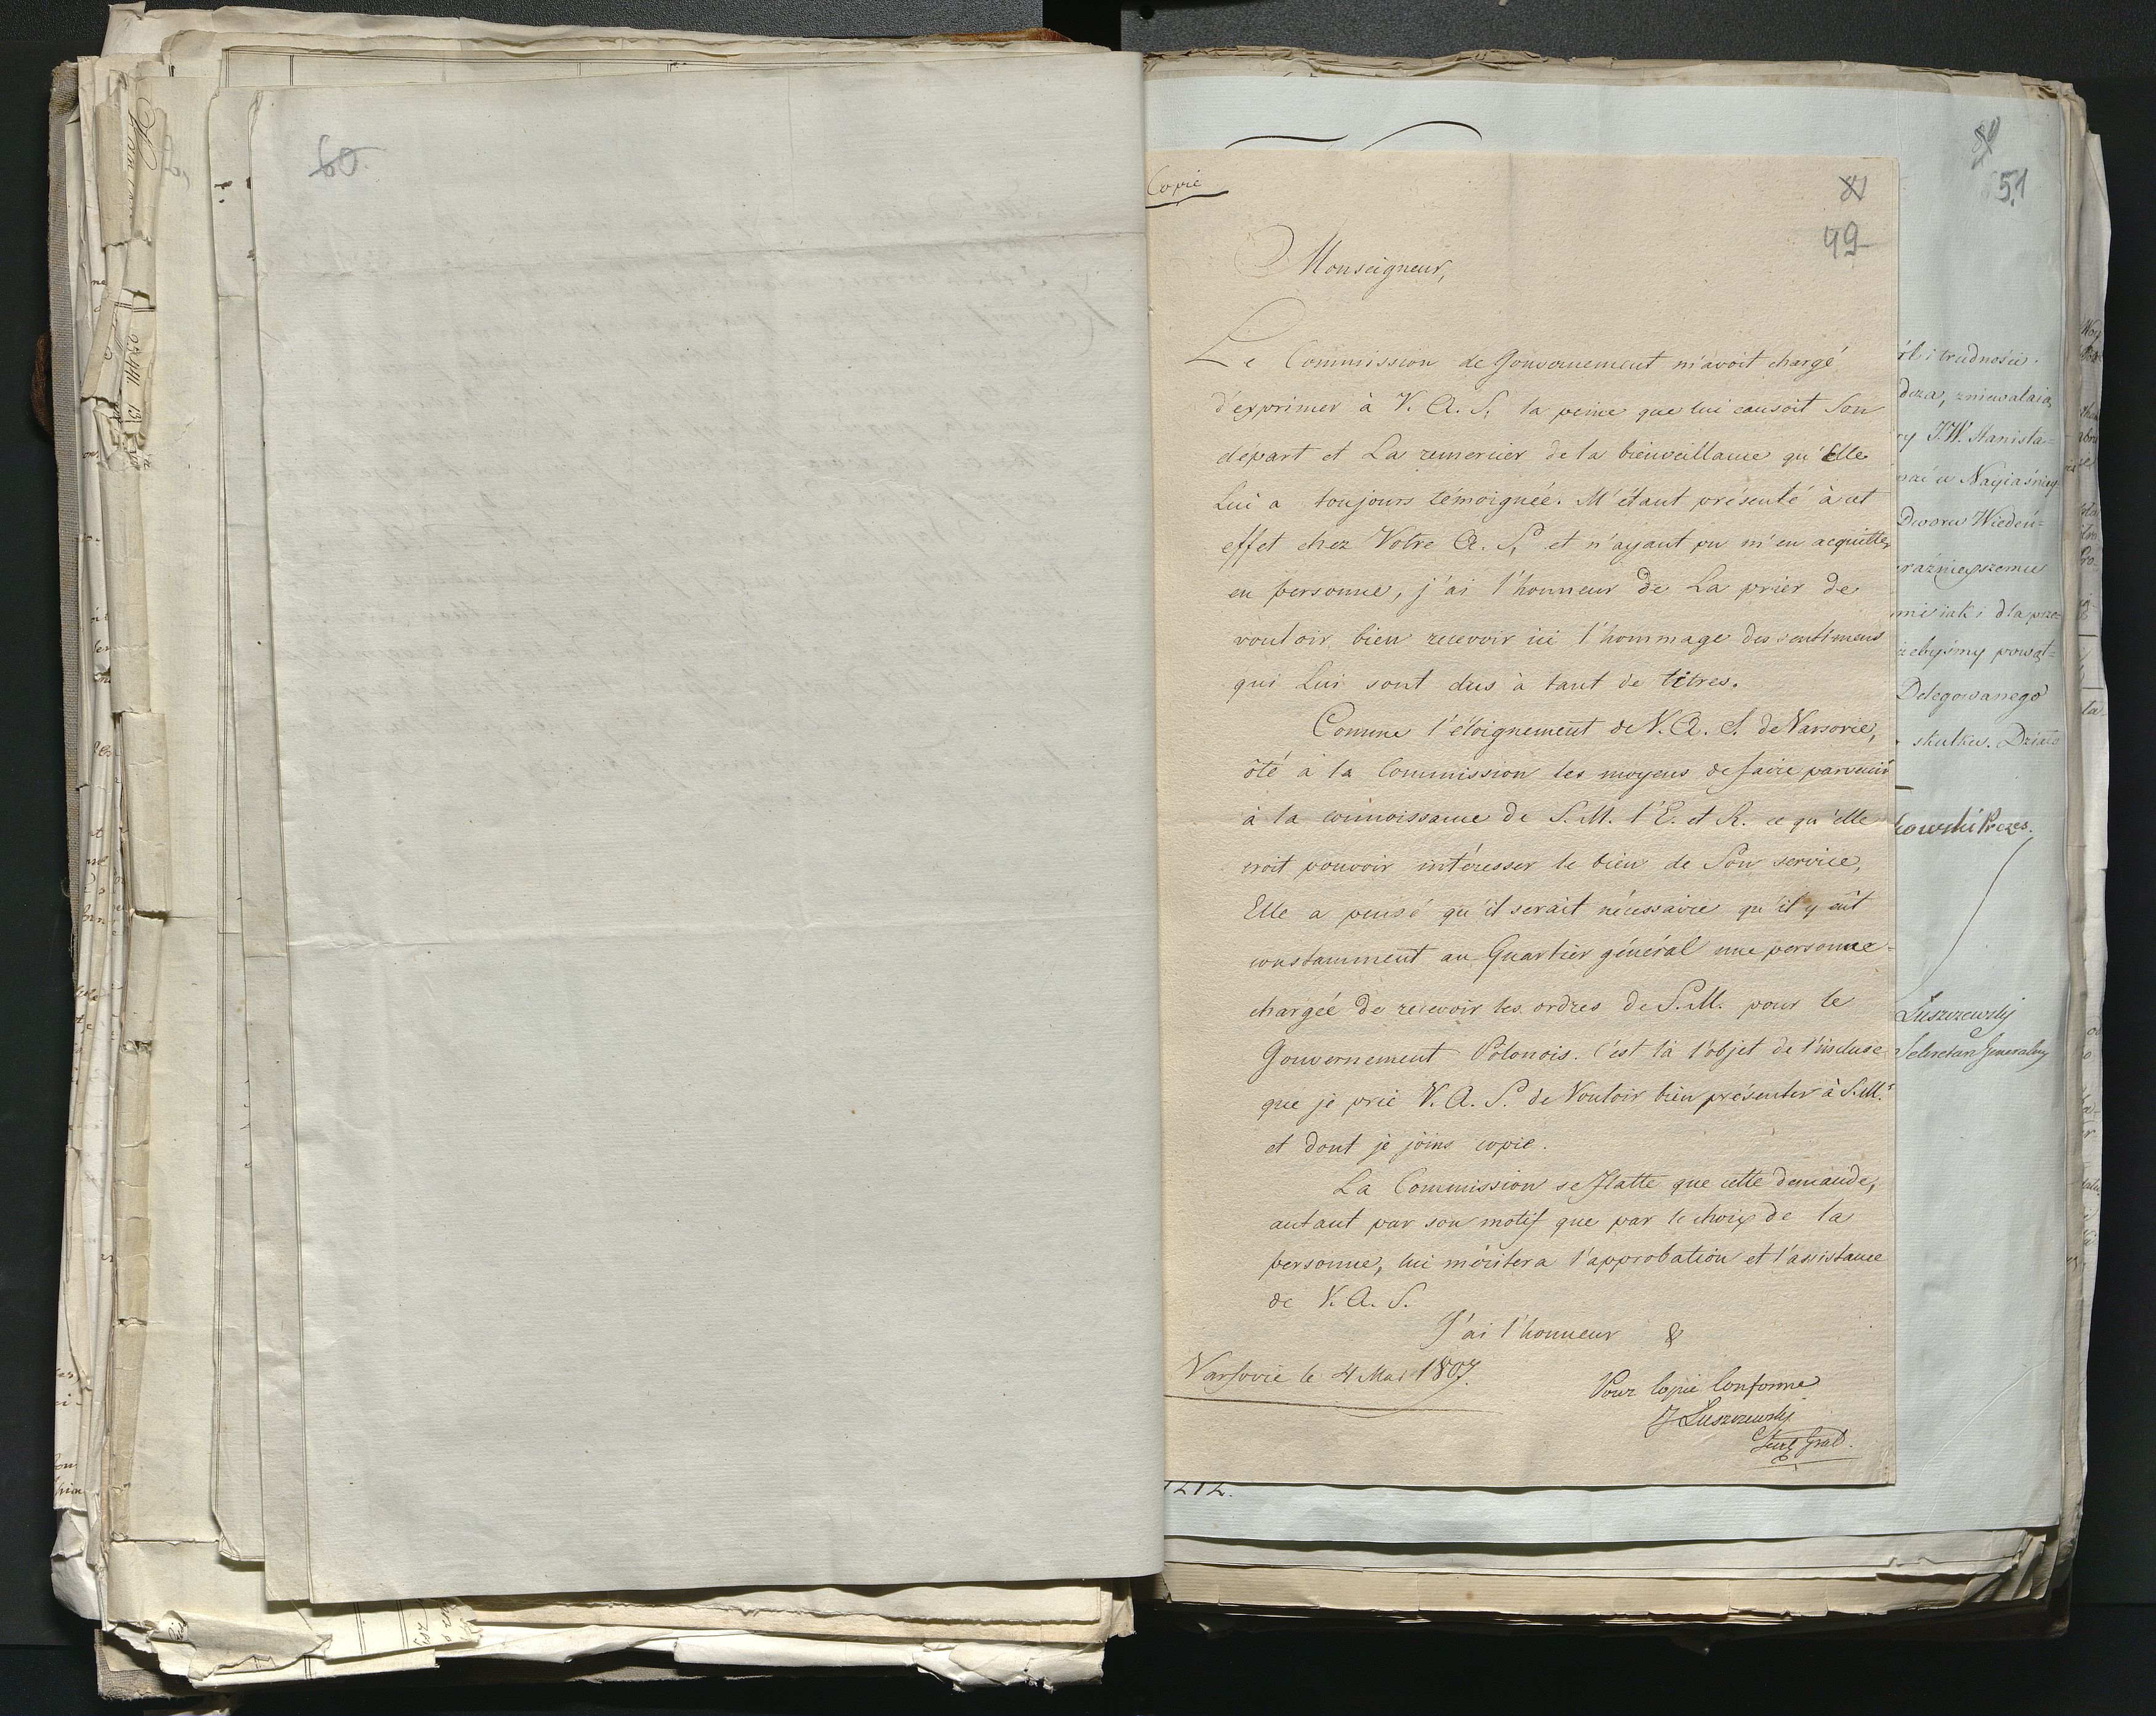 60.
Copie
81
49
Monseigneur,
Le Commission de Gouvernement m'avoit chargé
d'exprimer à V. A. S. la peine que lui causoit Son
depart et La remercier de la bienveillance qu'Elle
Lui a toujours témoignée. M'étant présenté à cet
effet chez Votre A. S. et n'ayant pu m'en acquitter
en personne, j'ai l'honneur de La prier de
vouloir bien recevoir ici l'hommage des sentimens
qui Lui sont dus à tant de titres.
Comme l'éloignement de V. A. S. de Varsovie,
ôte à la Commission les moyens de faire parvenir
à la connoissance de S. M. l'E. et R. ce qu'elle
croit pouvoir intéresser le bien de Son service,
Elle a pensé qu'il serait nécessaire qu'il y eût
constamment au Quartier général une personne
chargée de recevoir les ordres de S. M. pour le
Gouvernement Polonois. C'est là l'objet de l'incluse
que je prie V. A. S. de Vouloir bien présenter à S. M.
et dont je joins copie.
La Commission se flatte que cette demande,
autant par son motif que par le choix de la
personne, lui méritera l'approbation et l'assistance
de V. A. S.
J'ai l'honneur &
Varsovie le 4 Mai 1807.
Pour Copie Conforme
J Luszczewski
Secr Gnal.
51
i trudności.
zniewalaią
J. W. Stanisła=
Nayiaśniey
Dworu Wiedeń=
iak i dla prze=
żebyśmy powąt=
Delegowanego
skutku. Działo
kowski Prezes.
Luszczewski
Sekretarz Generalny
1212.